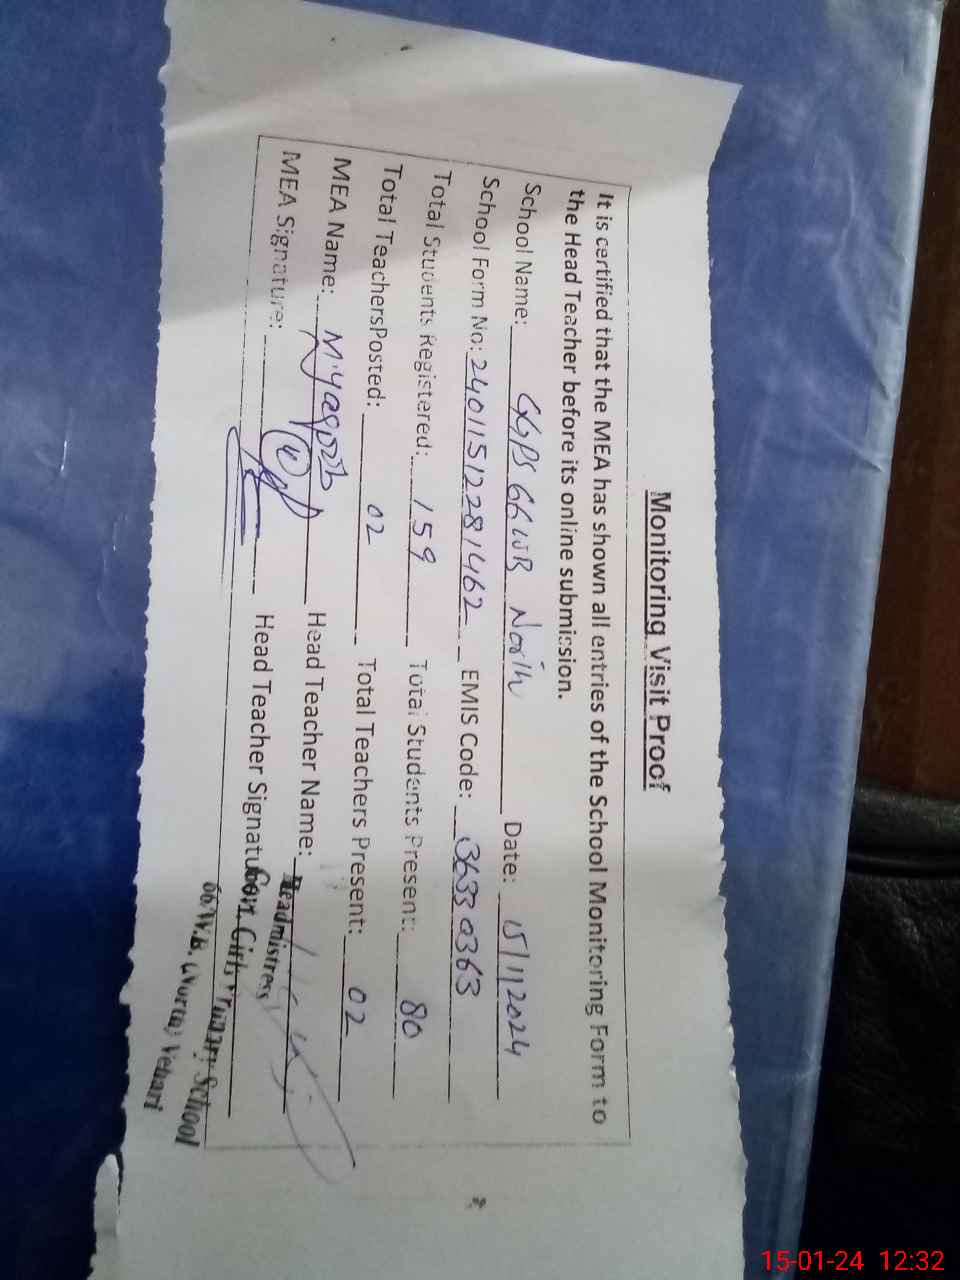 Monitoring Visit Proof
It is certified that the MEA has shown all entries of the School Monitoring Form to
the Head Teacher before its online submission.
School Name: GGPS 66 WB North Date: 15/1/2024
School Form No: 24011512281462 EMIS Code: 36330363
Total Students Registered: 159 Total Students Present: 80
Total Teachers Posted: 02 Total Teachers Present: 02
MEA Name: Head Teacher Name:
MEA Signature: Head Teacher Signature:
Headmistress
Govt Girls Primary School
66/W.B. (North) Vehari
15-01-24 12:32